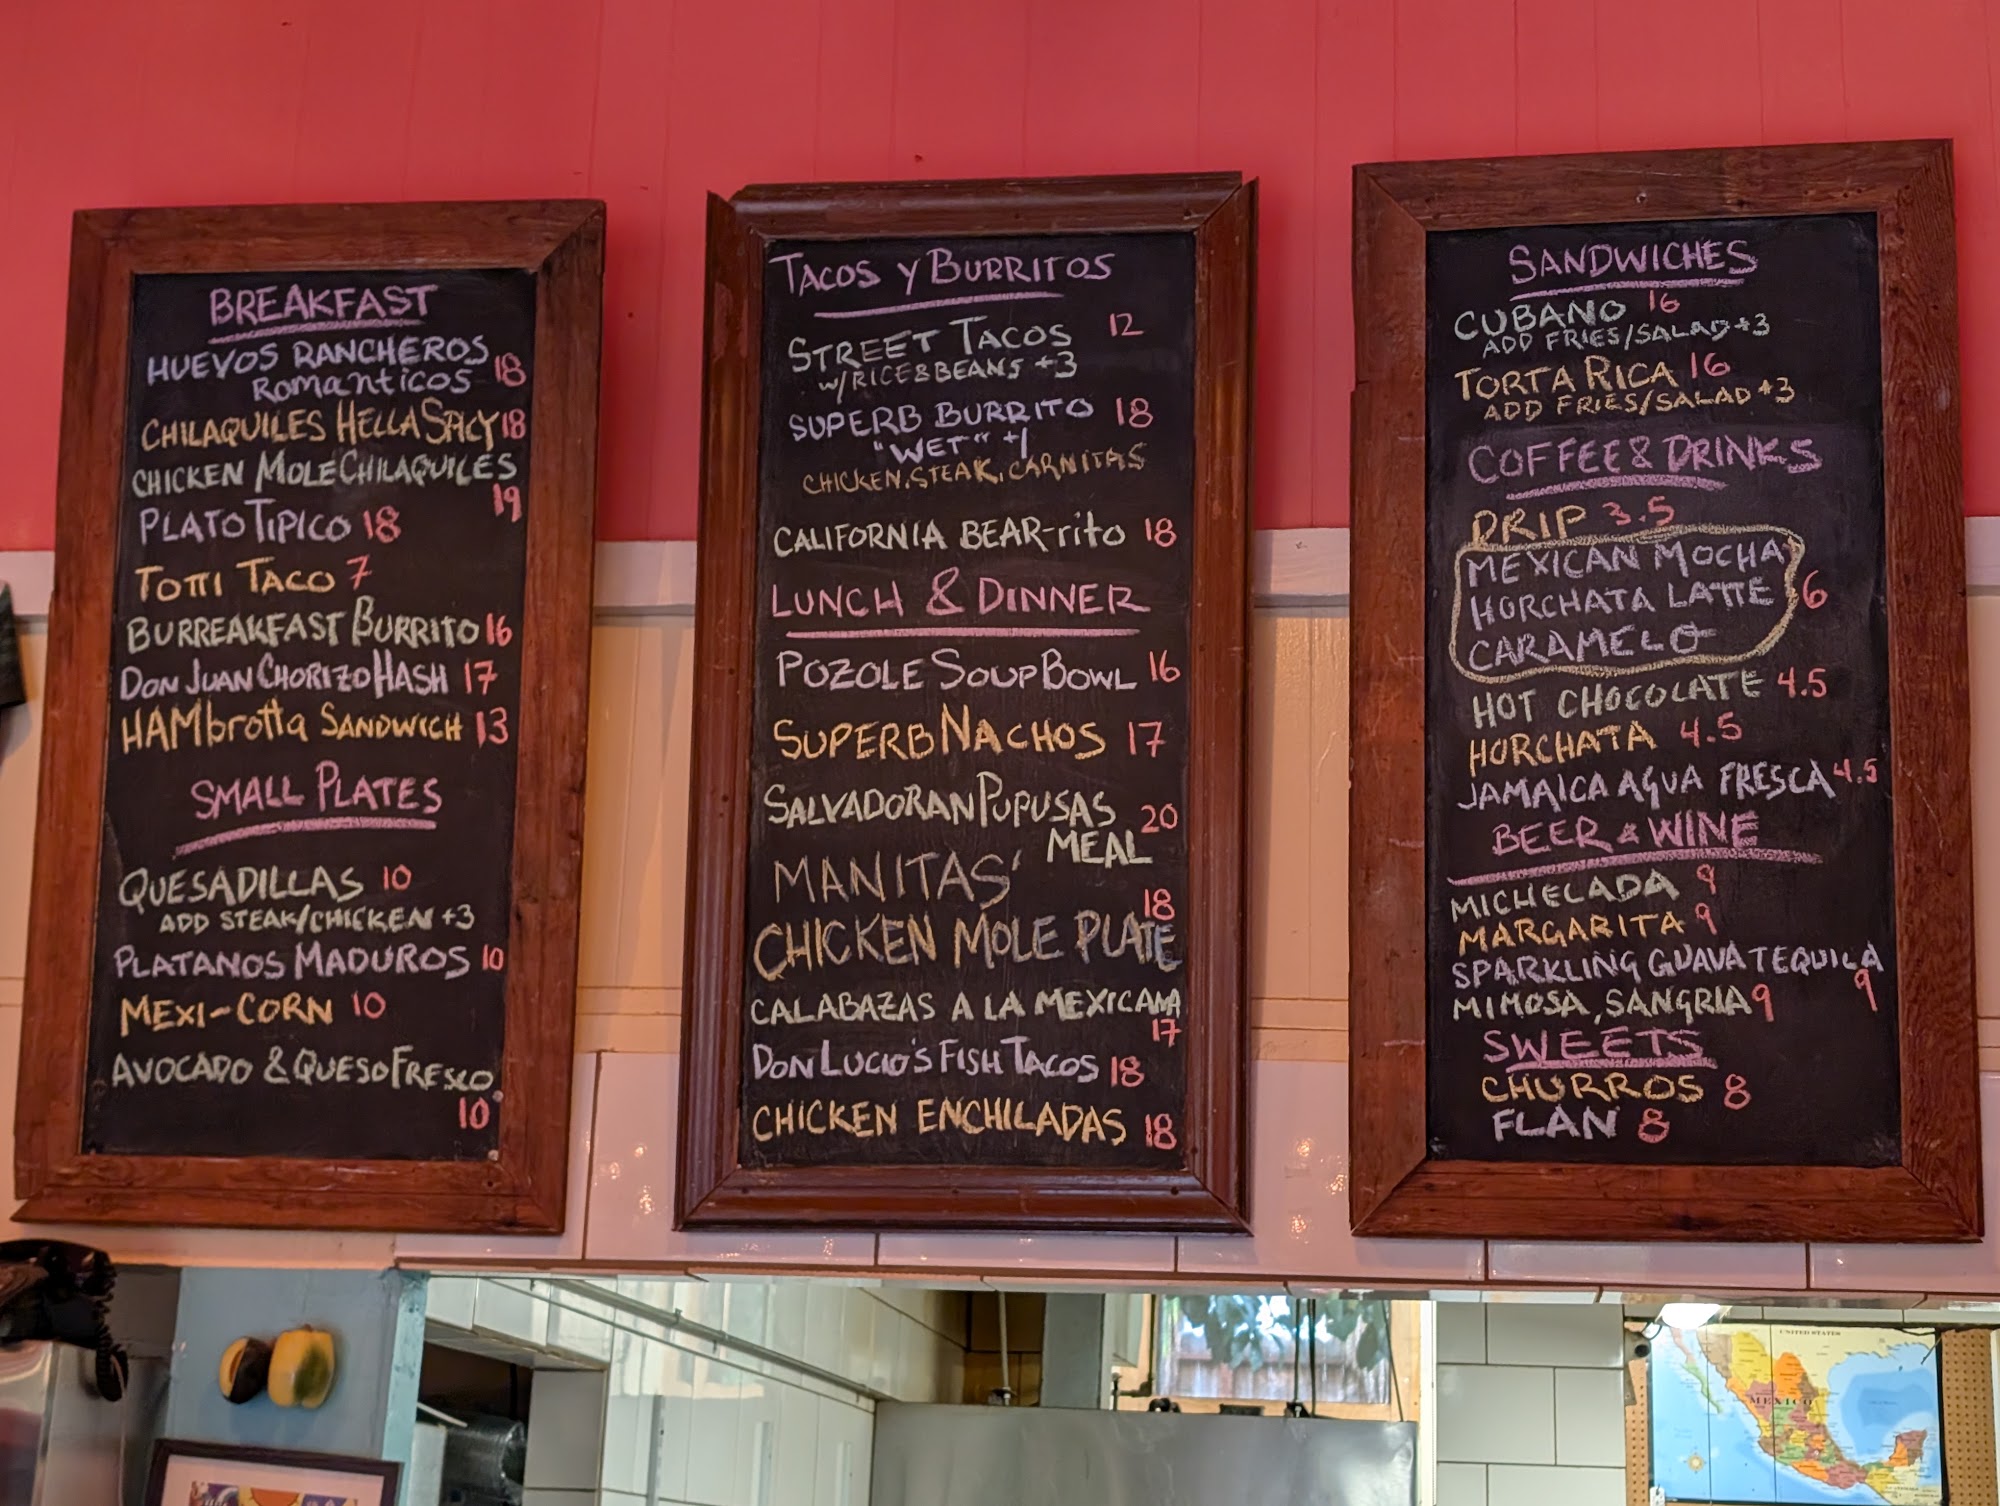 BREAKFAST
HUEVOS RANCHEROS
ROMANTICOS 18
CHILAQUILES HELLA SPICY 18
CHICKEN MOLE CHILAQUILES
19
PLATO TIPICO 18
TOTTI TACO 7
BURREAKFAST BURRITO 16
DON JUAN CHORIZO HASH 17
HAMbrotta SANDWICH 13
SMALL PLATES
QUESADILLAS 10
ADD STEAK/CHICKEN +3
PLATANOS MADUROS 10
MEXI-CORN 10
AVOCADO & QUESO FRESCO
10
TACOS Y BURRITOS
STREET TACOS 12
W/RICE&BEANS +3
SUPERB BURRITO 18
"WET" +1
CHICKEN, STEAK, CARNITAS
CALIFORNIA BEAR-rito 18
LUNCH & DINNER
POZOLE SOUP BOWL 16
SUPERB NACHOS 17
SALVADORAN PUPUSAS
MEAL 20
MANITAS'
CHICKEN MOLE PLATE 18
CALABAZAS A LA MEXICANA
17
DON LUCIO'S FISH TACOS 18
CHICKEN ENCHILADAS 18
SANDWICHES
CUBANO 16
ADD FRIES/SALAD +3
TORTA RICA 16
ADD FRIES/SALAD +3
COFFEE & DRINKS
DRIP 3.5
MEXICAN MOCHA
HORCHATA LATTE 6
CARAMELO
HOT CHOCOLATE 4.5
HORCHATA 4.5
JAMAICA AGUA FRESCA 4.5
BEER & WINE
MICHELADA 9
MARGARITA 9
SPARKLING GUAVA TEQUILA
9
MIMOSA, SANGRIA 9
SWEETS
CHURROS 8
FLAN 8
UNITED STATES
MEXICO